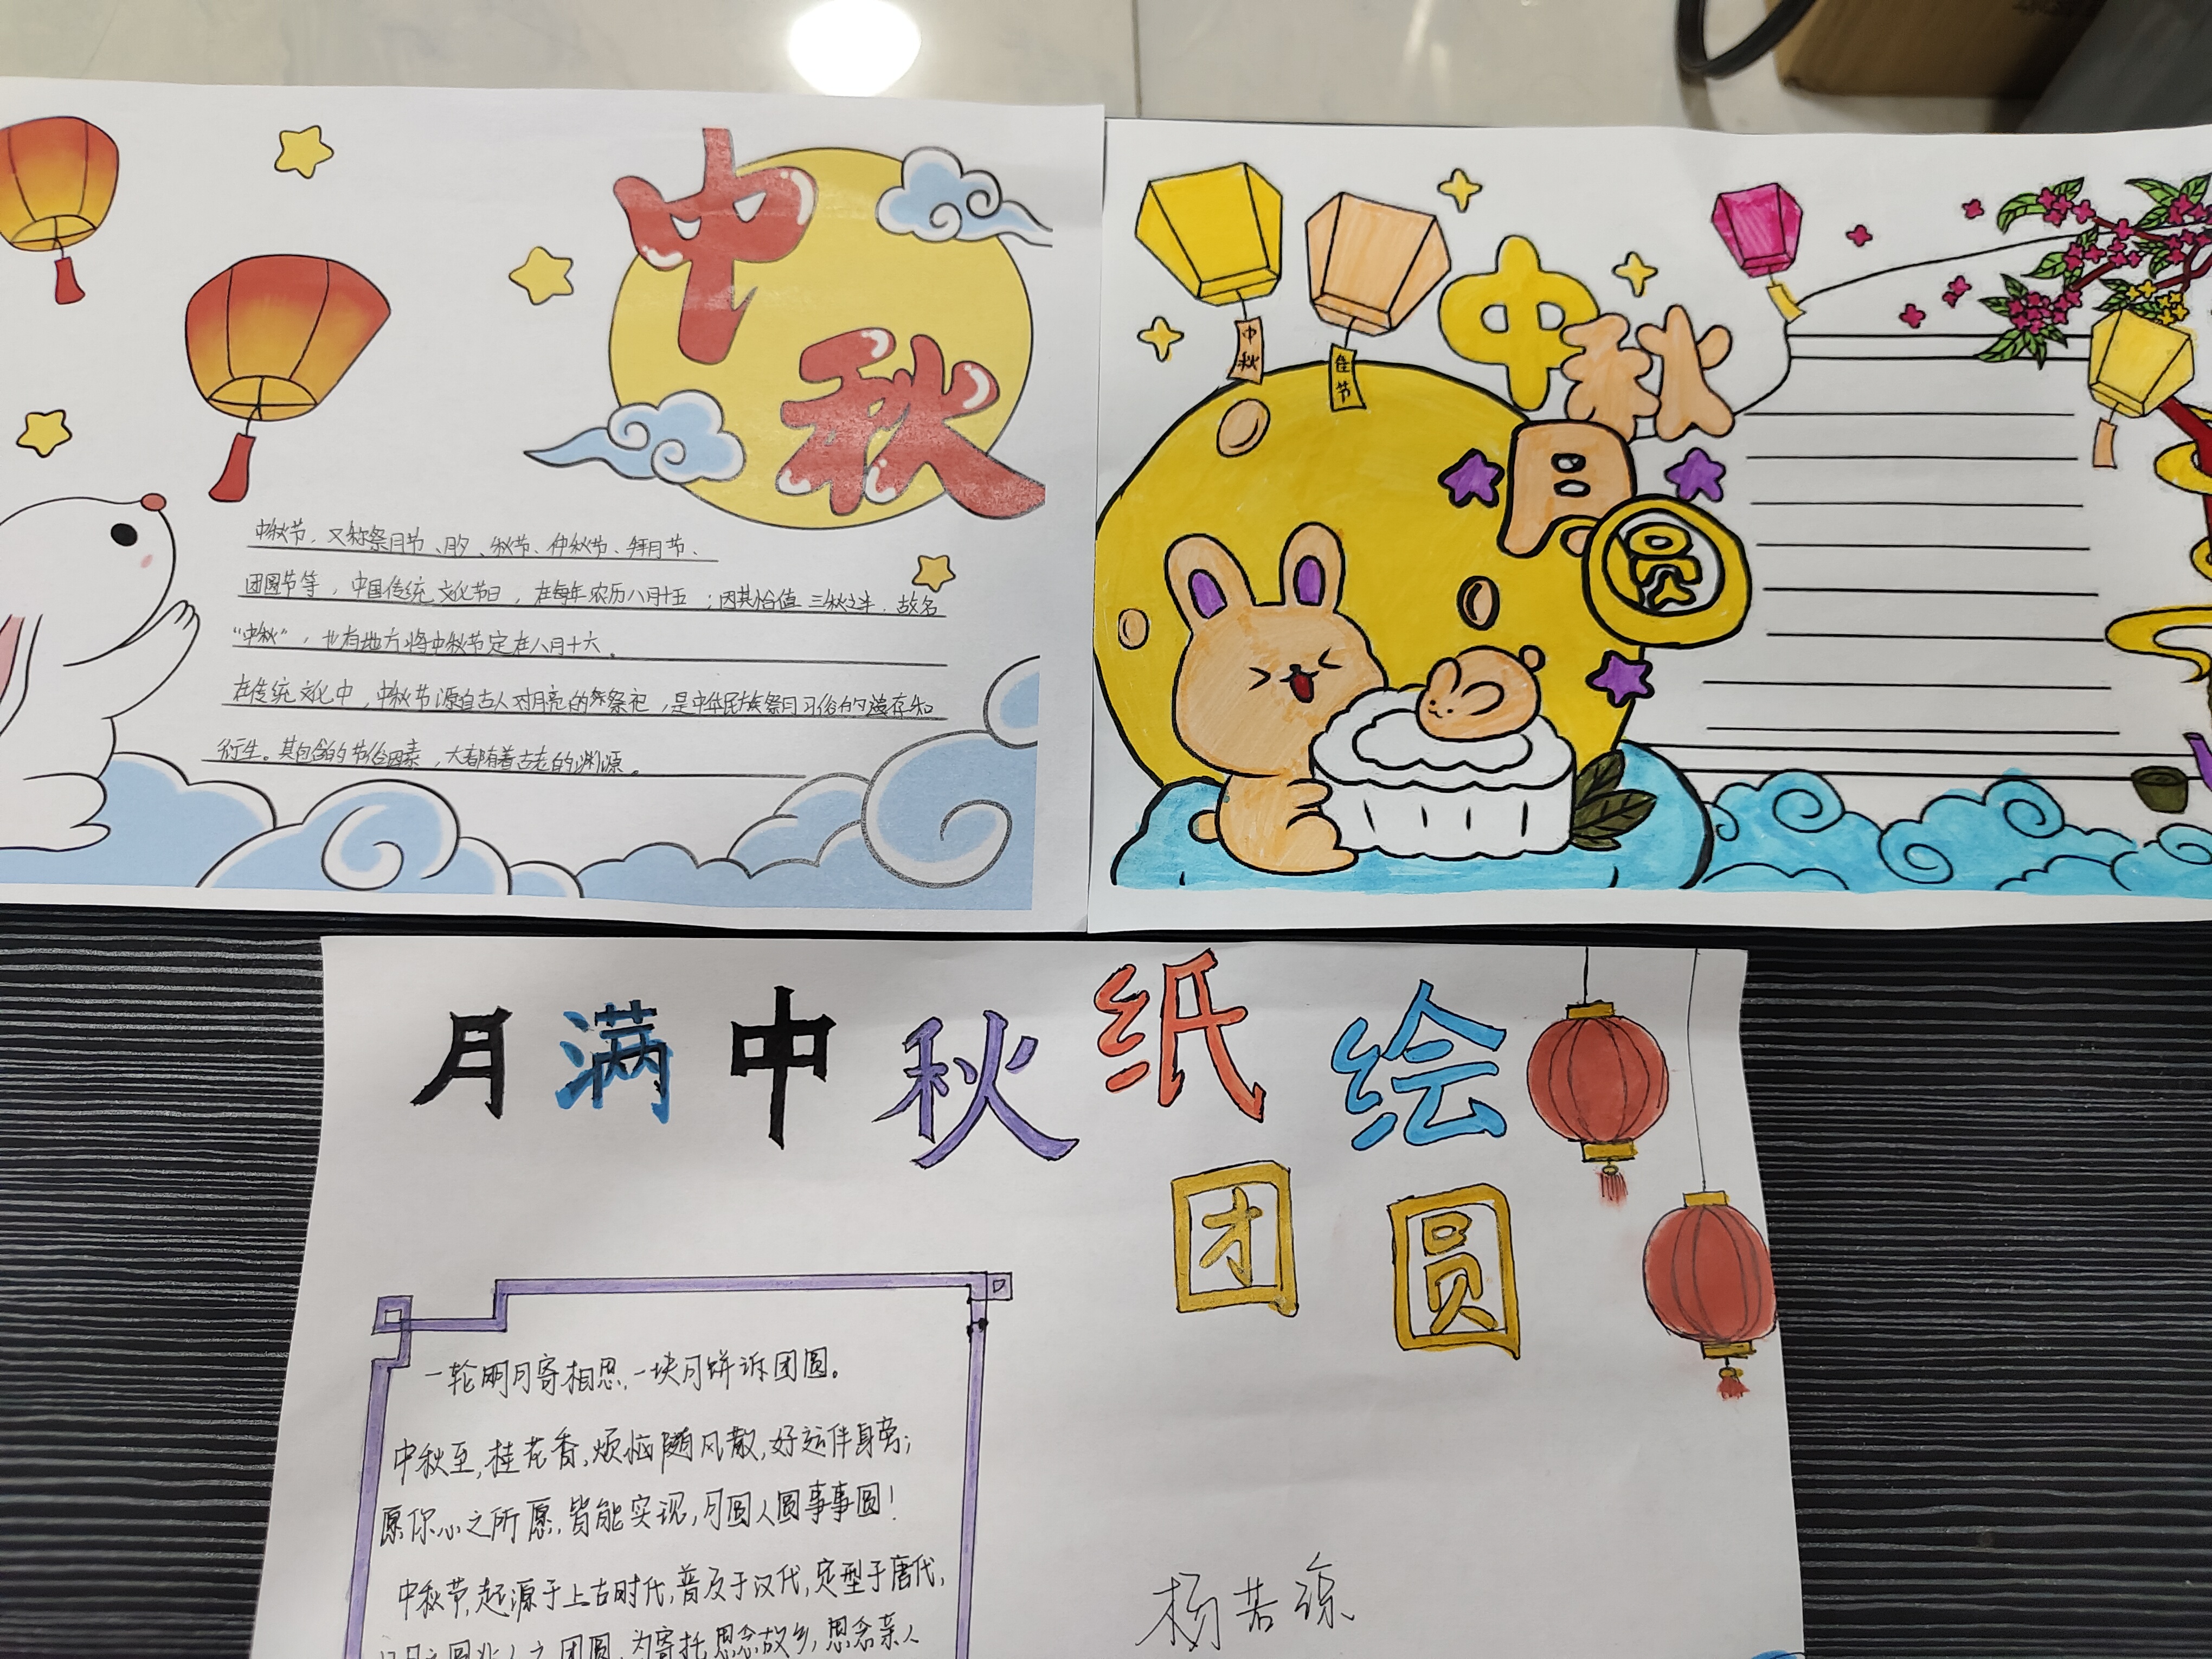 中
秋
中秋节，又称祭月节、月夕、秋节、仲秋节、拜月节、
团圆节等，中国传统文化节日，在每年农历八月十五；因其恰值三秋之半，故名
“中秋”，也有地方将中秋节定在八月十六。
在传统文化中，中秋节源自古人对月亮的祭祀，是中华民族祭月习俗的遗存和
衍生。其包含的节俗因素，大都有着古老的渊源。
中秋
佳节
中秋
月圆
月满中秋纸绘
团圆
一轮明月寄相思，一块月饼诉团圆。
中秋至，桂花香，烦恼随风散，好运伴身旁；
愿你心之所愿，皆能实现，月圆人圆事事圆！
中秋节，起源于上古时代，普及于汉代，定型于唐代，
以月之圆兆人之团圆，为寄托思念故乡，思念亲人
杨若